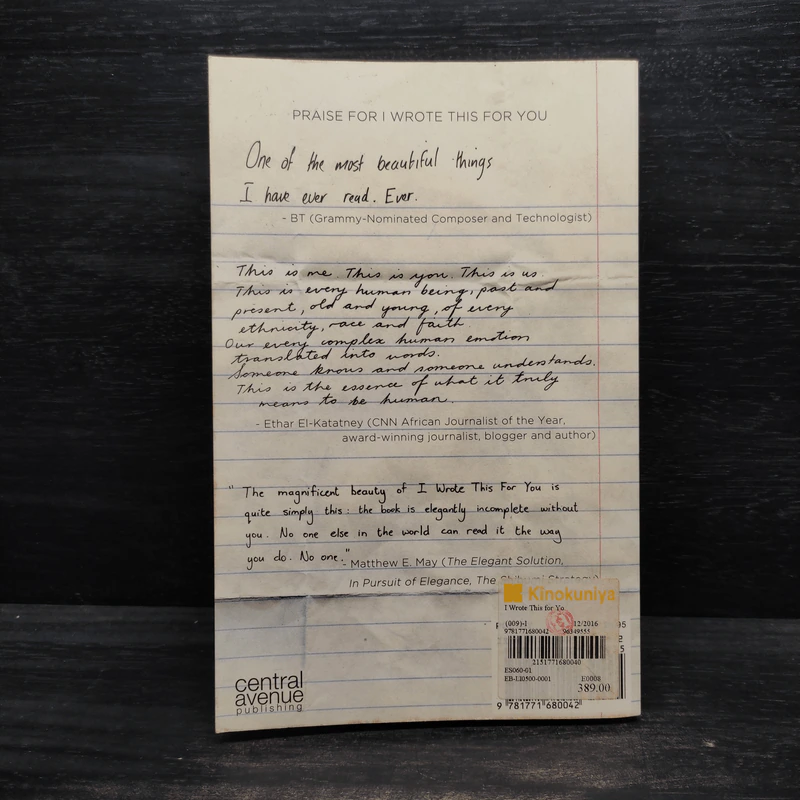 PRAISE FOR I WROTE THIS FOR YOU
One of the most beautiful things
I have ever read. Ever.
- BT (Grammy-Nominated Composer and Technologist)
This is me. This is you. This is us.
This is every human being, past and
present, old and young, of every
ethnicity, race and faith.
Our every complex human emotion
translated into words.
Someone knows and someone understands.
This is the essence of what it truly
means to be human.
- Ethar El-Katatney (CNN African Journalist of the Year,
award-winning journalist, blogger and author)
"The magnificent beauty of I Wrote This For You is
quite simply this: the book is elegantly incomplete without
you. No one else in the world can read it the way
you do. No one."
- Matthew E. May (The Elegant Solution,
In Pursuit of Elegance, The Shibumi Strategy)
Kinokuniya
I Wrote This for Yo
(009)-1 12/2016
9781771680042 96349555
2151771680040
ES060-01
EB-130500-0001 E0008
389.00
9 781771 680042
central
avenue
publishing